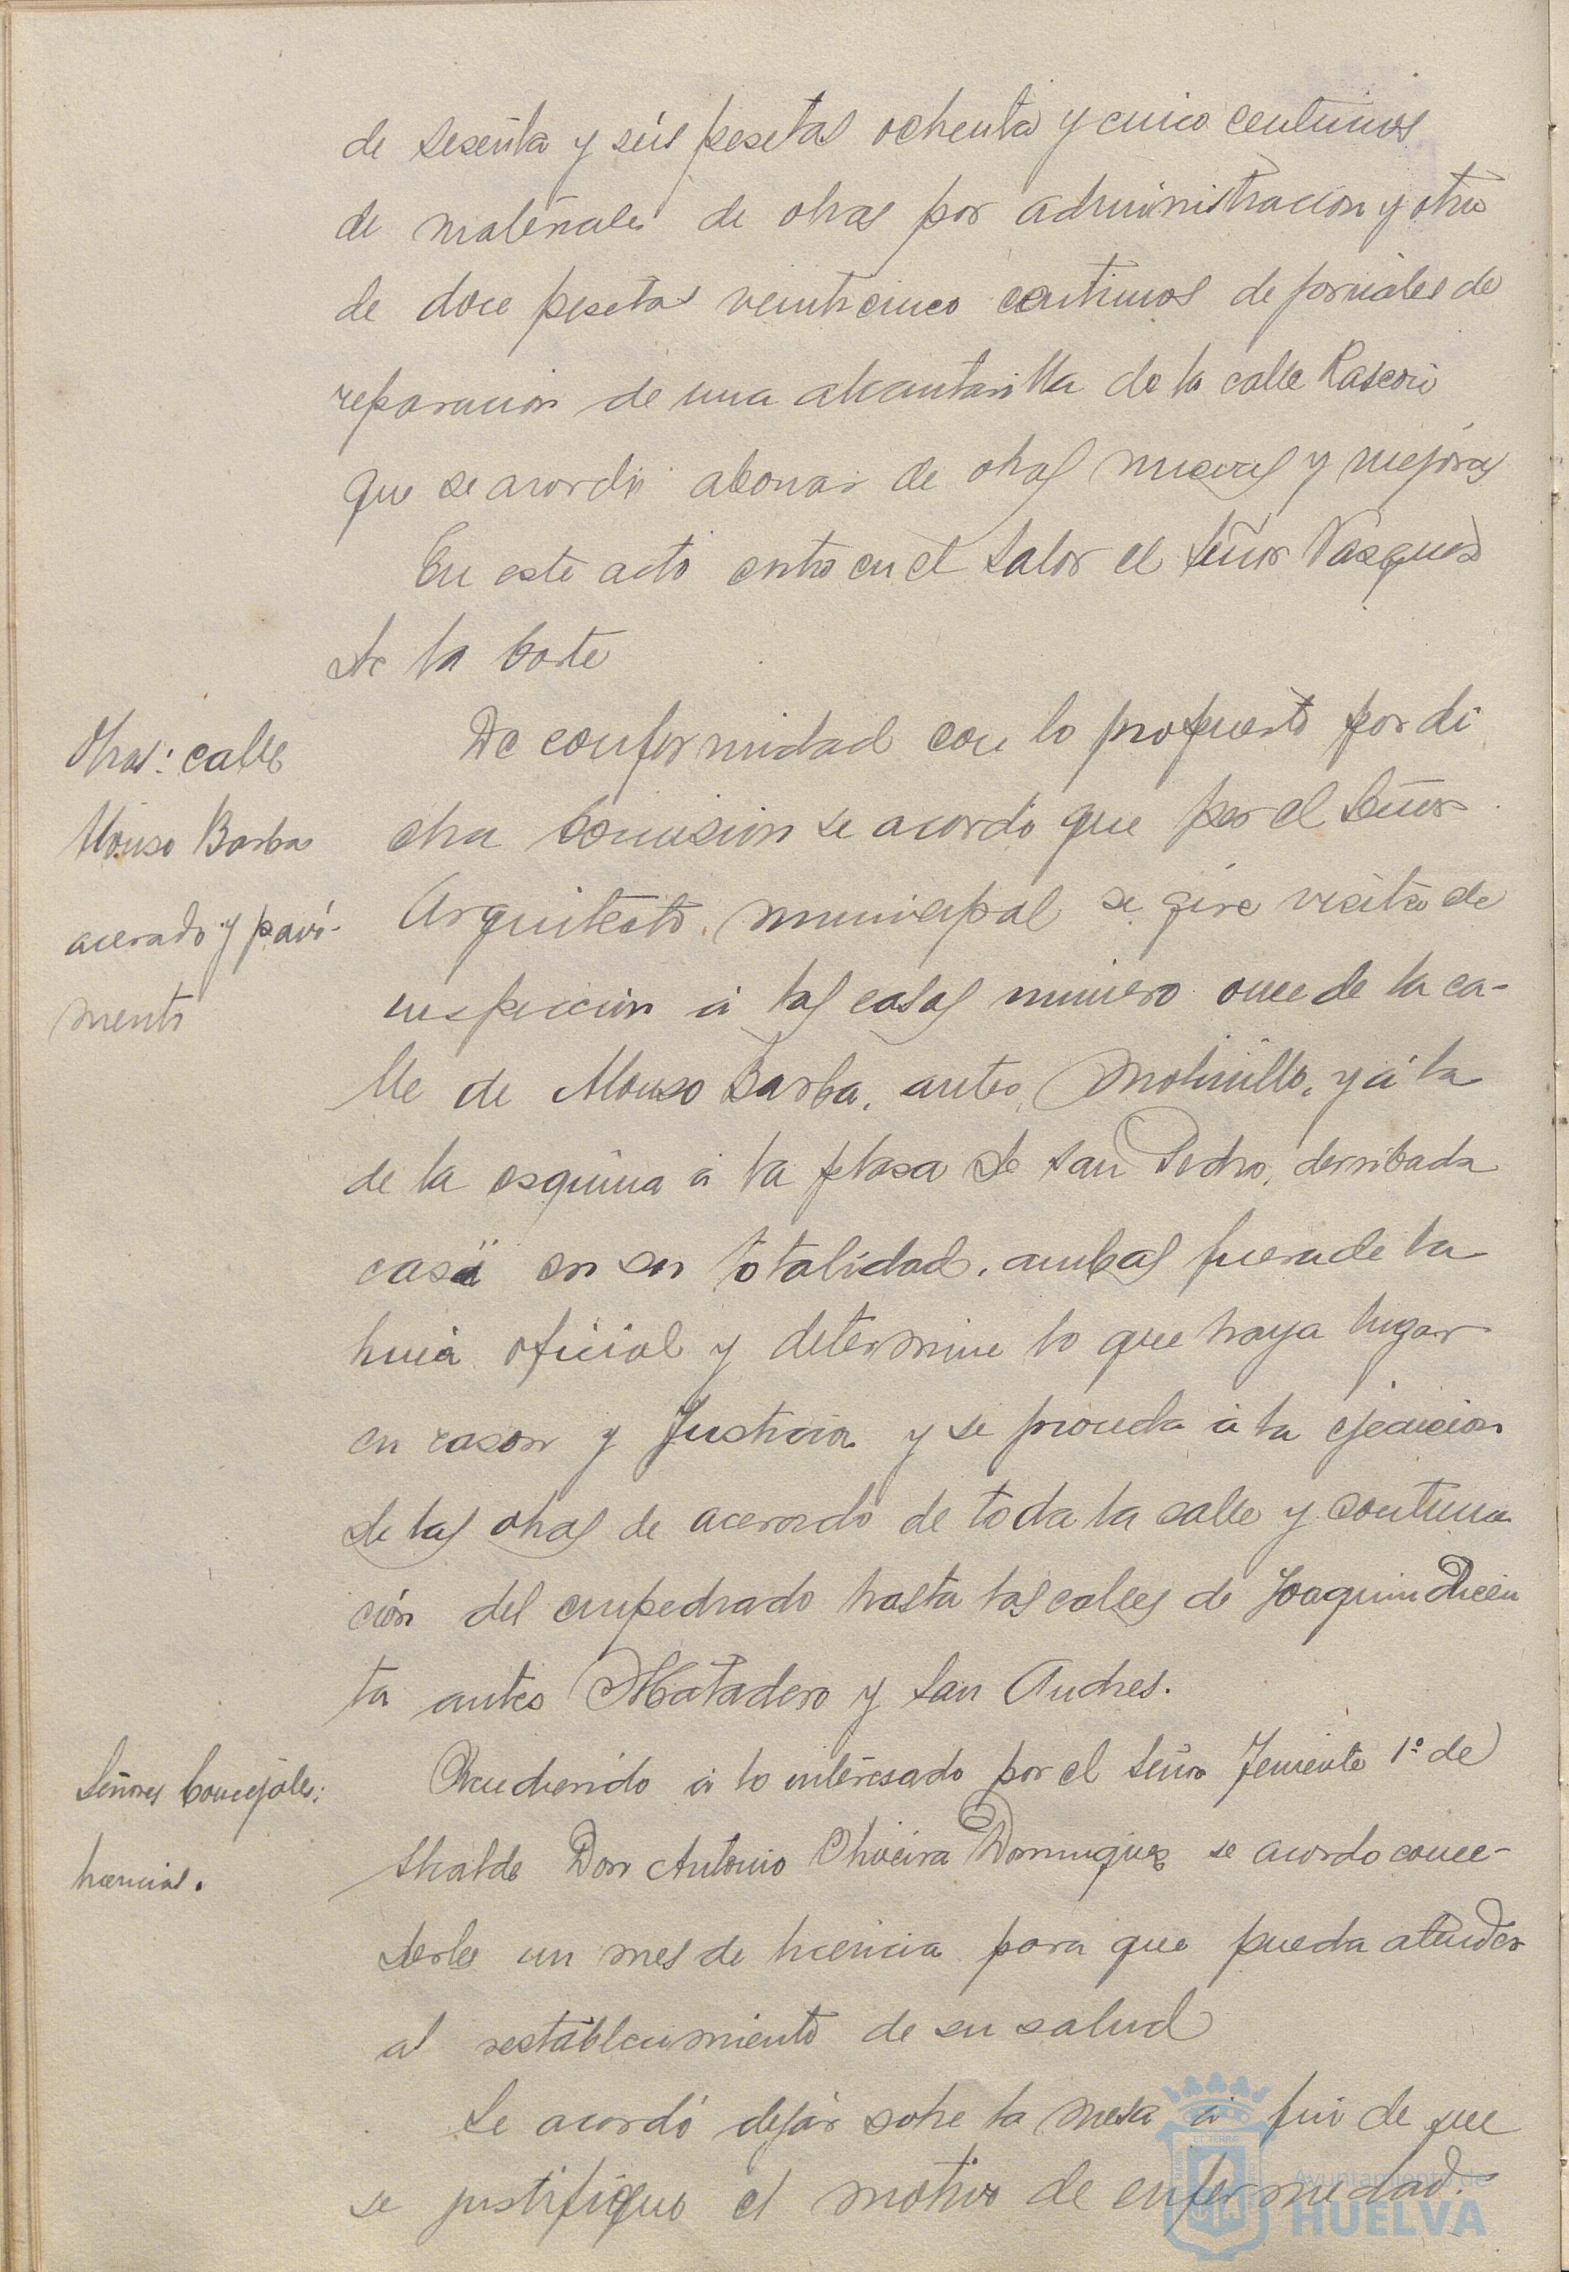 de sesenta y seis pesetas ochenta y cinco centimos
de materiales de obras por administracion y otra
de doce pesetas veinticinco centimos de jornales de
reparacion de una alcantarilla de la calle Rascon
que se acordó abonar de obras nuevas y mejoras
En este acto entro en el Salon el Señor Vasquez
de la Corte
Obras: calle
Alonso Barba
acerado y pavi-
mento
De conformidad con lo propuesto por di
cha Comision se acordo que por el Señor
Arquitecto municipal se gire visita de
inspeccion á las casas numero once de la ca-
lle de Alonso Barba, antes Molinillo, y á la
de la esquina á la plasa de San Pedro, derribada
casi en su totalidad, ambas fuera de la
linea oficial y determine lo que haya lugar
en rason y Justicia y se proceda á la ejecucion
de las obras de acerado de toda la calle y continua
ción del empedrado hasta las calles de Joaquin Dicen
ta antes Matadero y San Andres.
Señores Concejales:
licencias.
Accediendo á lo interesado por el Señor Teniente 1º de
Alcalde Don Antonio Oliveira Dominguez se acordo conce-
derle un mes de licencia para que pueda atender
al restablecimiento de su salud
Se acordó dejar sobre la mesa á fin de que
se justifique el motivo de enfermedad.
Ayuntamiento de
HUELVA